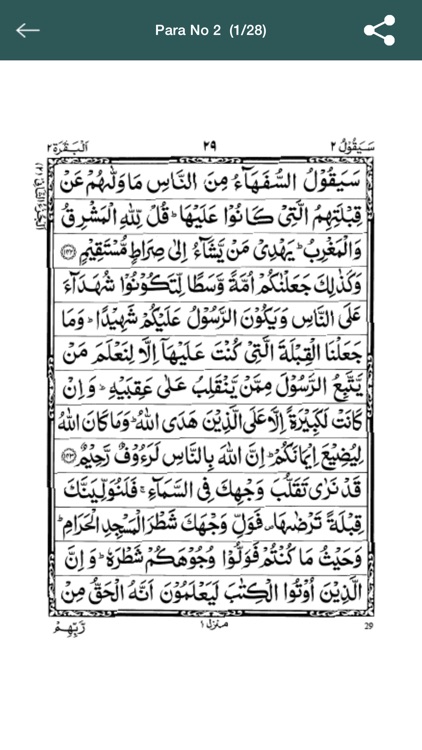 Para No 2 (1/28)
سَيَقُوْلُ ٢
٢٩
اَلْبَقَرَة ٢
سَيَقُوْلُ السُّفَهَآءُ مِنَ النَّاسِ مَا وَلّٰىهُمْ عَنْ
قِبْلَتِهِمُ الَّتِىْ كَانُوْا عَلَيْهَا ؕ قُلْ لِّلّٰهِ الْمَشْرِقُ
وَالْمَغْرِبُ ؕ يَهْدِىْ مَنْ يَّشَآءُ اِلٰى صِرَاطٍ مُّسْتَقِيْمٍ ﴿۱۴۲﴾
وَكَذٰلِكَ جَعَلْنٰكُمْ اُمَّةً وَّسَطًا لِّتَكُوْنُوْا شُهَدَآءَ
عَلَى النَّاسِ وَيَكُوْنَ الرَّسُوْلُ عَلَيْكُمْ شَهِيْدًا ؕ وَمَا
جَعَلْنَا الْقِبْلَةَ الَّتِىْ كُنْتَ عَلَيْهَآ اِلَّا لِنَعْلَمَ مَنْ
يَّتَّبِعُ الرَّسُوْلَ مِمَّنْ يَّنْقَلِبُ عَلٰى عَقِبَيْهِ ؕ وَاِنْ
كَانَتْ لَكَبِيْرَةً اِلَّا عَلَى الَّذِيْنَ هَدَى اللّٰهُ ؕ وَمَا كَانَ اللّٰهُ
لِيُضِيْعَ اِيْمَانَكُمْ ؕ اِنَّ اللّٰهَ بِالنَّاسِ لَرَءُوْفٌ رَّحِيْمٌ ﴿۱۴۳﴾
قَدْ نَرٰى تَقَلُّبَ وَجْهِكَ فِى السَّمَآءِ ۚ فَلَنُوَلِّيَنَّكَ
قِبْلَةً تَرْضٰىهَا ۪ فَوَلِّ وَجْهَكَ شَطْرَ الْمَسْجِدِ الْحَرَامِ ؕ
وَحَيْثُ مَا كُنْتُمْ فَوَلُّوْا وُجُوْهَكُمْ شَطْرَهٗ ؕ وَاِنَّ
الَّذِيْنَ اُوْتُوا الْكِتٰبَ لَيَعْلَمُوْنَ اَنَّهُ الْحَقُّ مِنْ
29
منزل ١
رَّبِّهِمْ